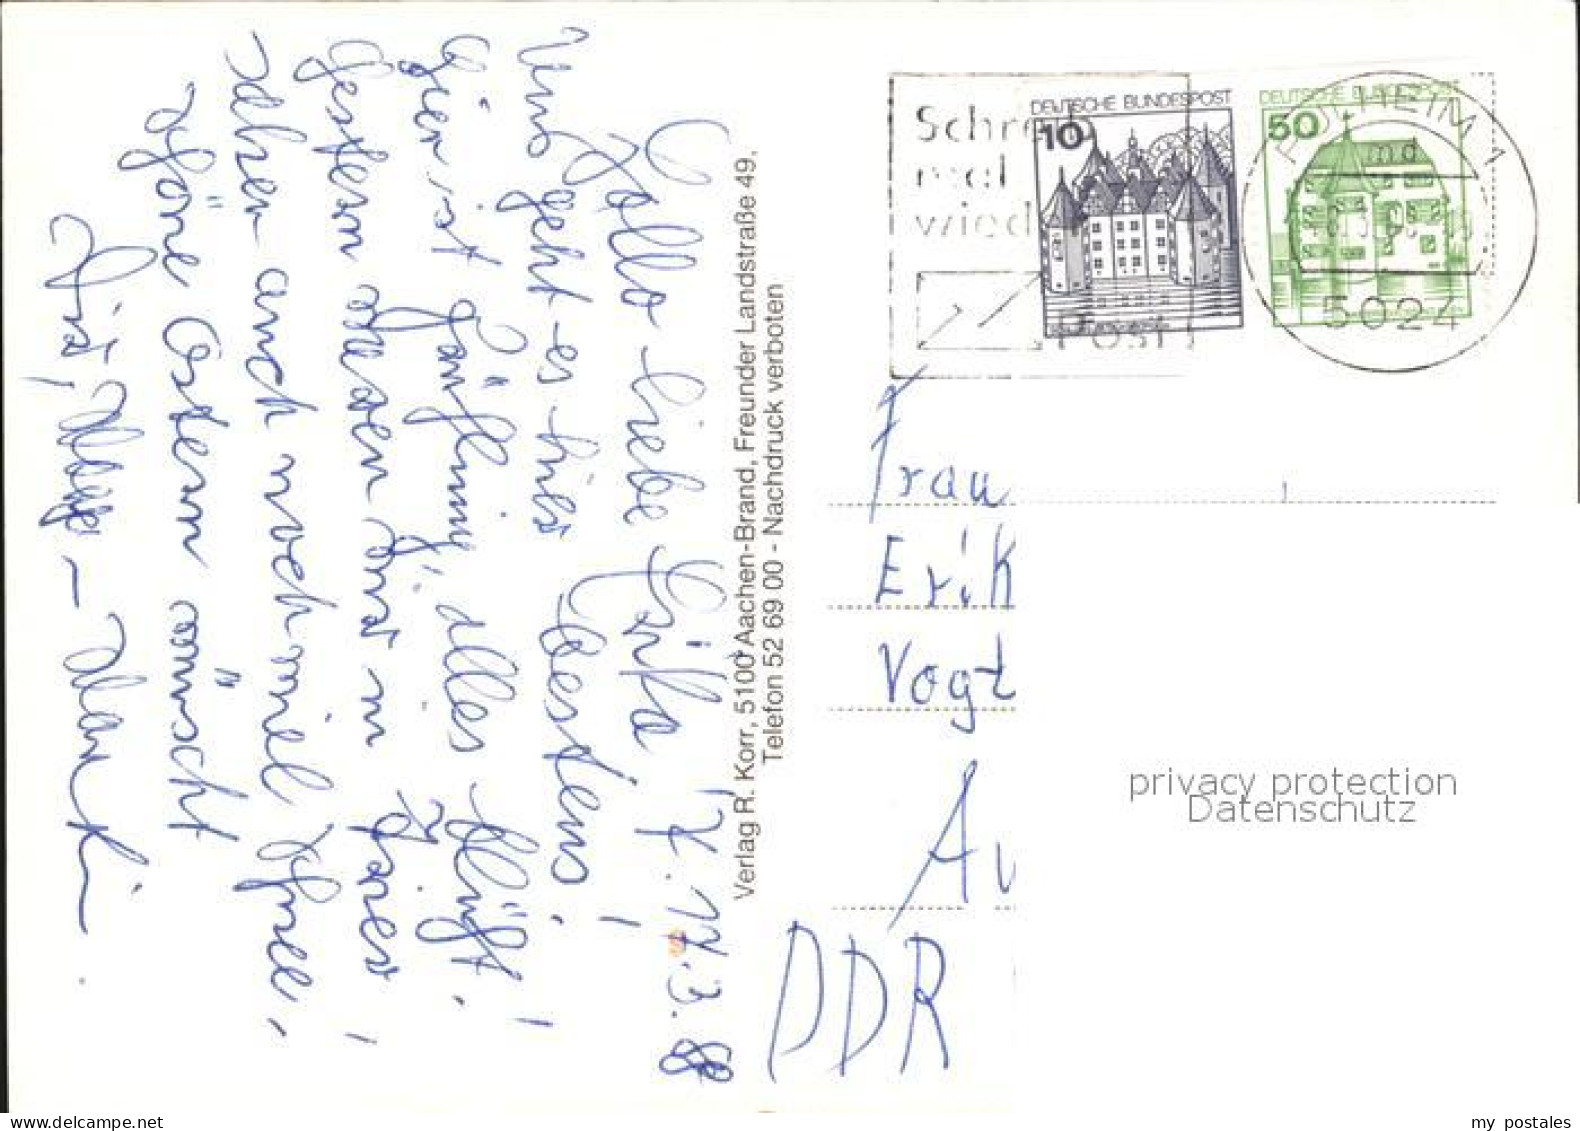 Hallo liebe Erika, K. 17.3.88
Uns geht es hier bestens!
Hier ist Frühling, alles blüht!
Gestern waren wir in
sahen auch noch viel Schnee.
schöne Ostern wünscht
Verlag R. Korr, 5100 Aachen-Brand, Freunder Landstraße 49,
Telefon 52 69 00 - Nachdruck verboten
Schreib
mal
wied
Post
DEUTSCHE BUNDESPOST
10
DEUTSCHE BUNDESPOST
50
PULHEIM 1
5024
Frau
Erik
Vogt
Au
DDR
privacy protection
Datenschutz
my postales